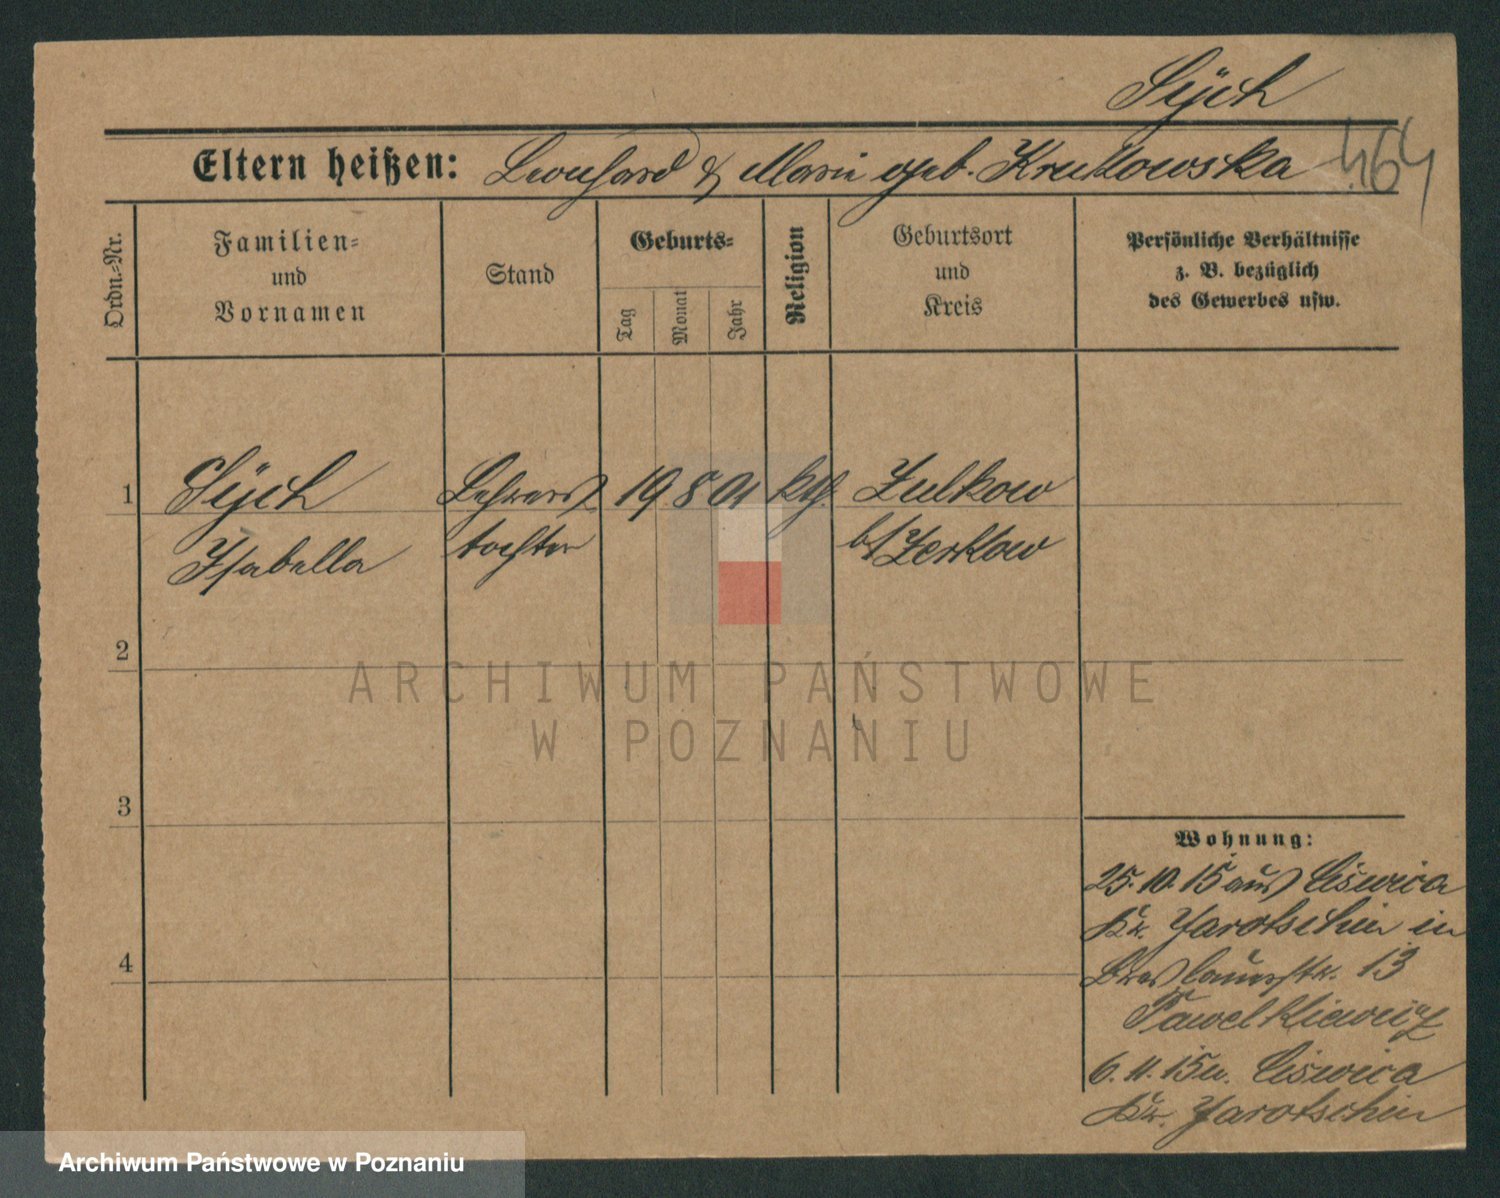 Sÿch
464
Eltern heißen: Leonhard & Marie geb. Krukowska
Ordn.-Nr.
Familien-
und
Vornamen
Stand
Geburts-
Tag
Monat
Jahr
Religion
Geburtsort
und
Kreis
Persönliche Verhältnisse
z. B. bezüglich
des Gewerbes usw.
1
Sÿch
Isabella
Lehrers
tochter
19 8 01
kth.
Zulkow
b/ Zerkow
2
3
4
Wohnung:
25. 10. 15 aus Ciswica
Kr. Jarotschin in
Breslauerstr. 13
Pawelkiewicz
6. 11. 15 n. Ciswica
Kr. Jarotschin
ARCHIWUM PAŃSTWOWE
W POZNANIU
Archiwum Państwowe w Poznaniu